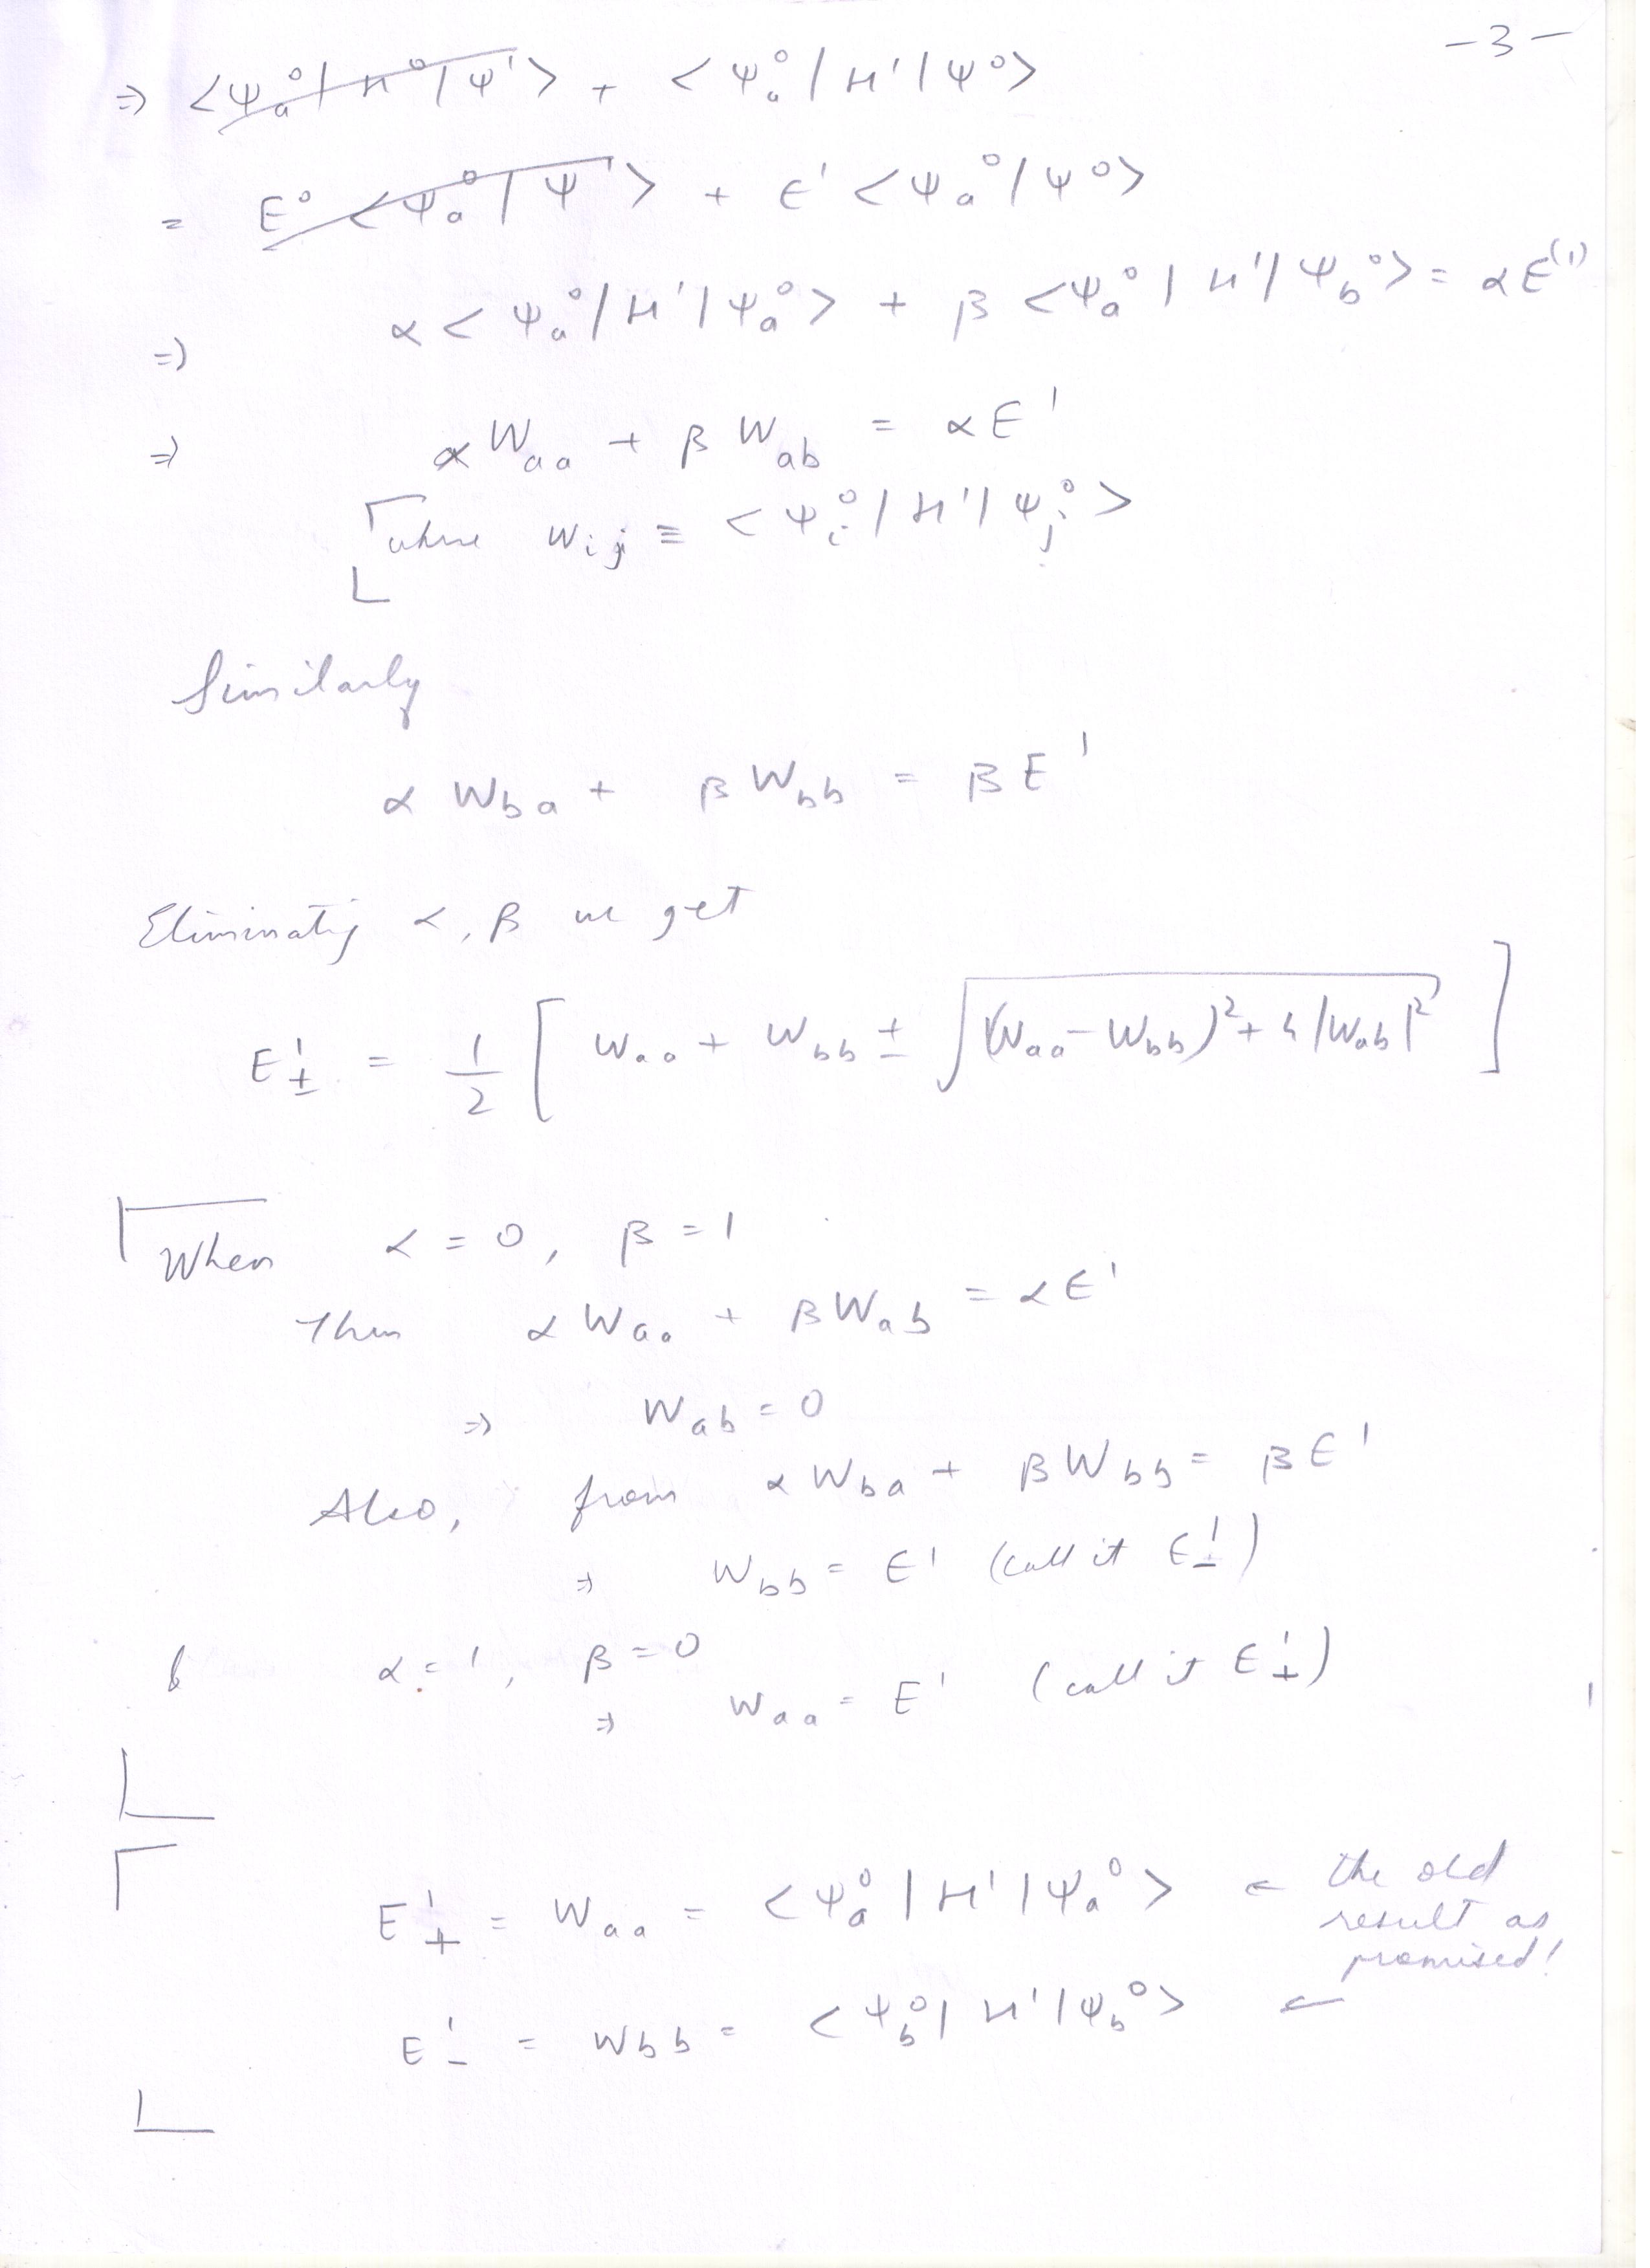 -3-
⇒ <Ψₐ⁰|H⁰|Ψ'> + <Ψₐ⁰|H'|Ψ⁰>
= E⁰ <Ψₐ⁰|Ψ'> + E' <Ψₐ⁰|Ψ⁰>
⇒ α<Ψₐ⁰|H'|Ψₐ⁰> + β <Ψₐ⁰|H'|Ψ_b⁰> = αE⁽¹⁾
⇒ αW_aa + βW_ab = αE'
where W_ij ≡ <Ψ_i⁰|H'|Ψ_j⁰>
Similarly
αW_ba + βW_bb = βE'
Eliminating α, β we get
E'_± = 1/2 [ W_aa + W_bb ± √((W_aa - W_bb)² + 4|W_ab|²) ]
When α = 0, β = 1
Then αW_aa + βW_ab = αE'
⇒ W_ab = 0
Also, from αW_ba + βW_bb = βE'
⇒ W_bb = E' (call it E'_-)
& α = 1, β = 0
⇒ W_aa = E' (call it E'_+)
E'_+ = W_aa = <Ψₐ⁰|H'|Ψₐ⁰> ← the old
result as
promised!
E'_- = W_bb = <Ψ_b⁰|H'|Ψ_b⁰> ←